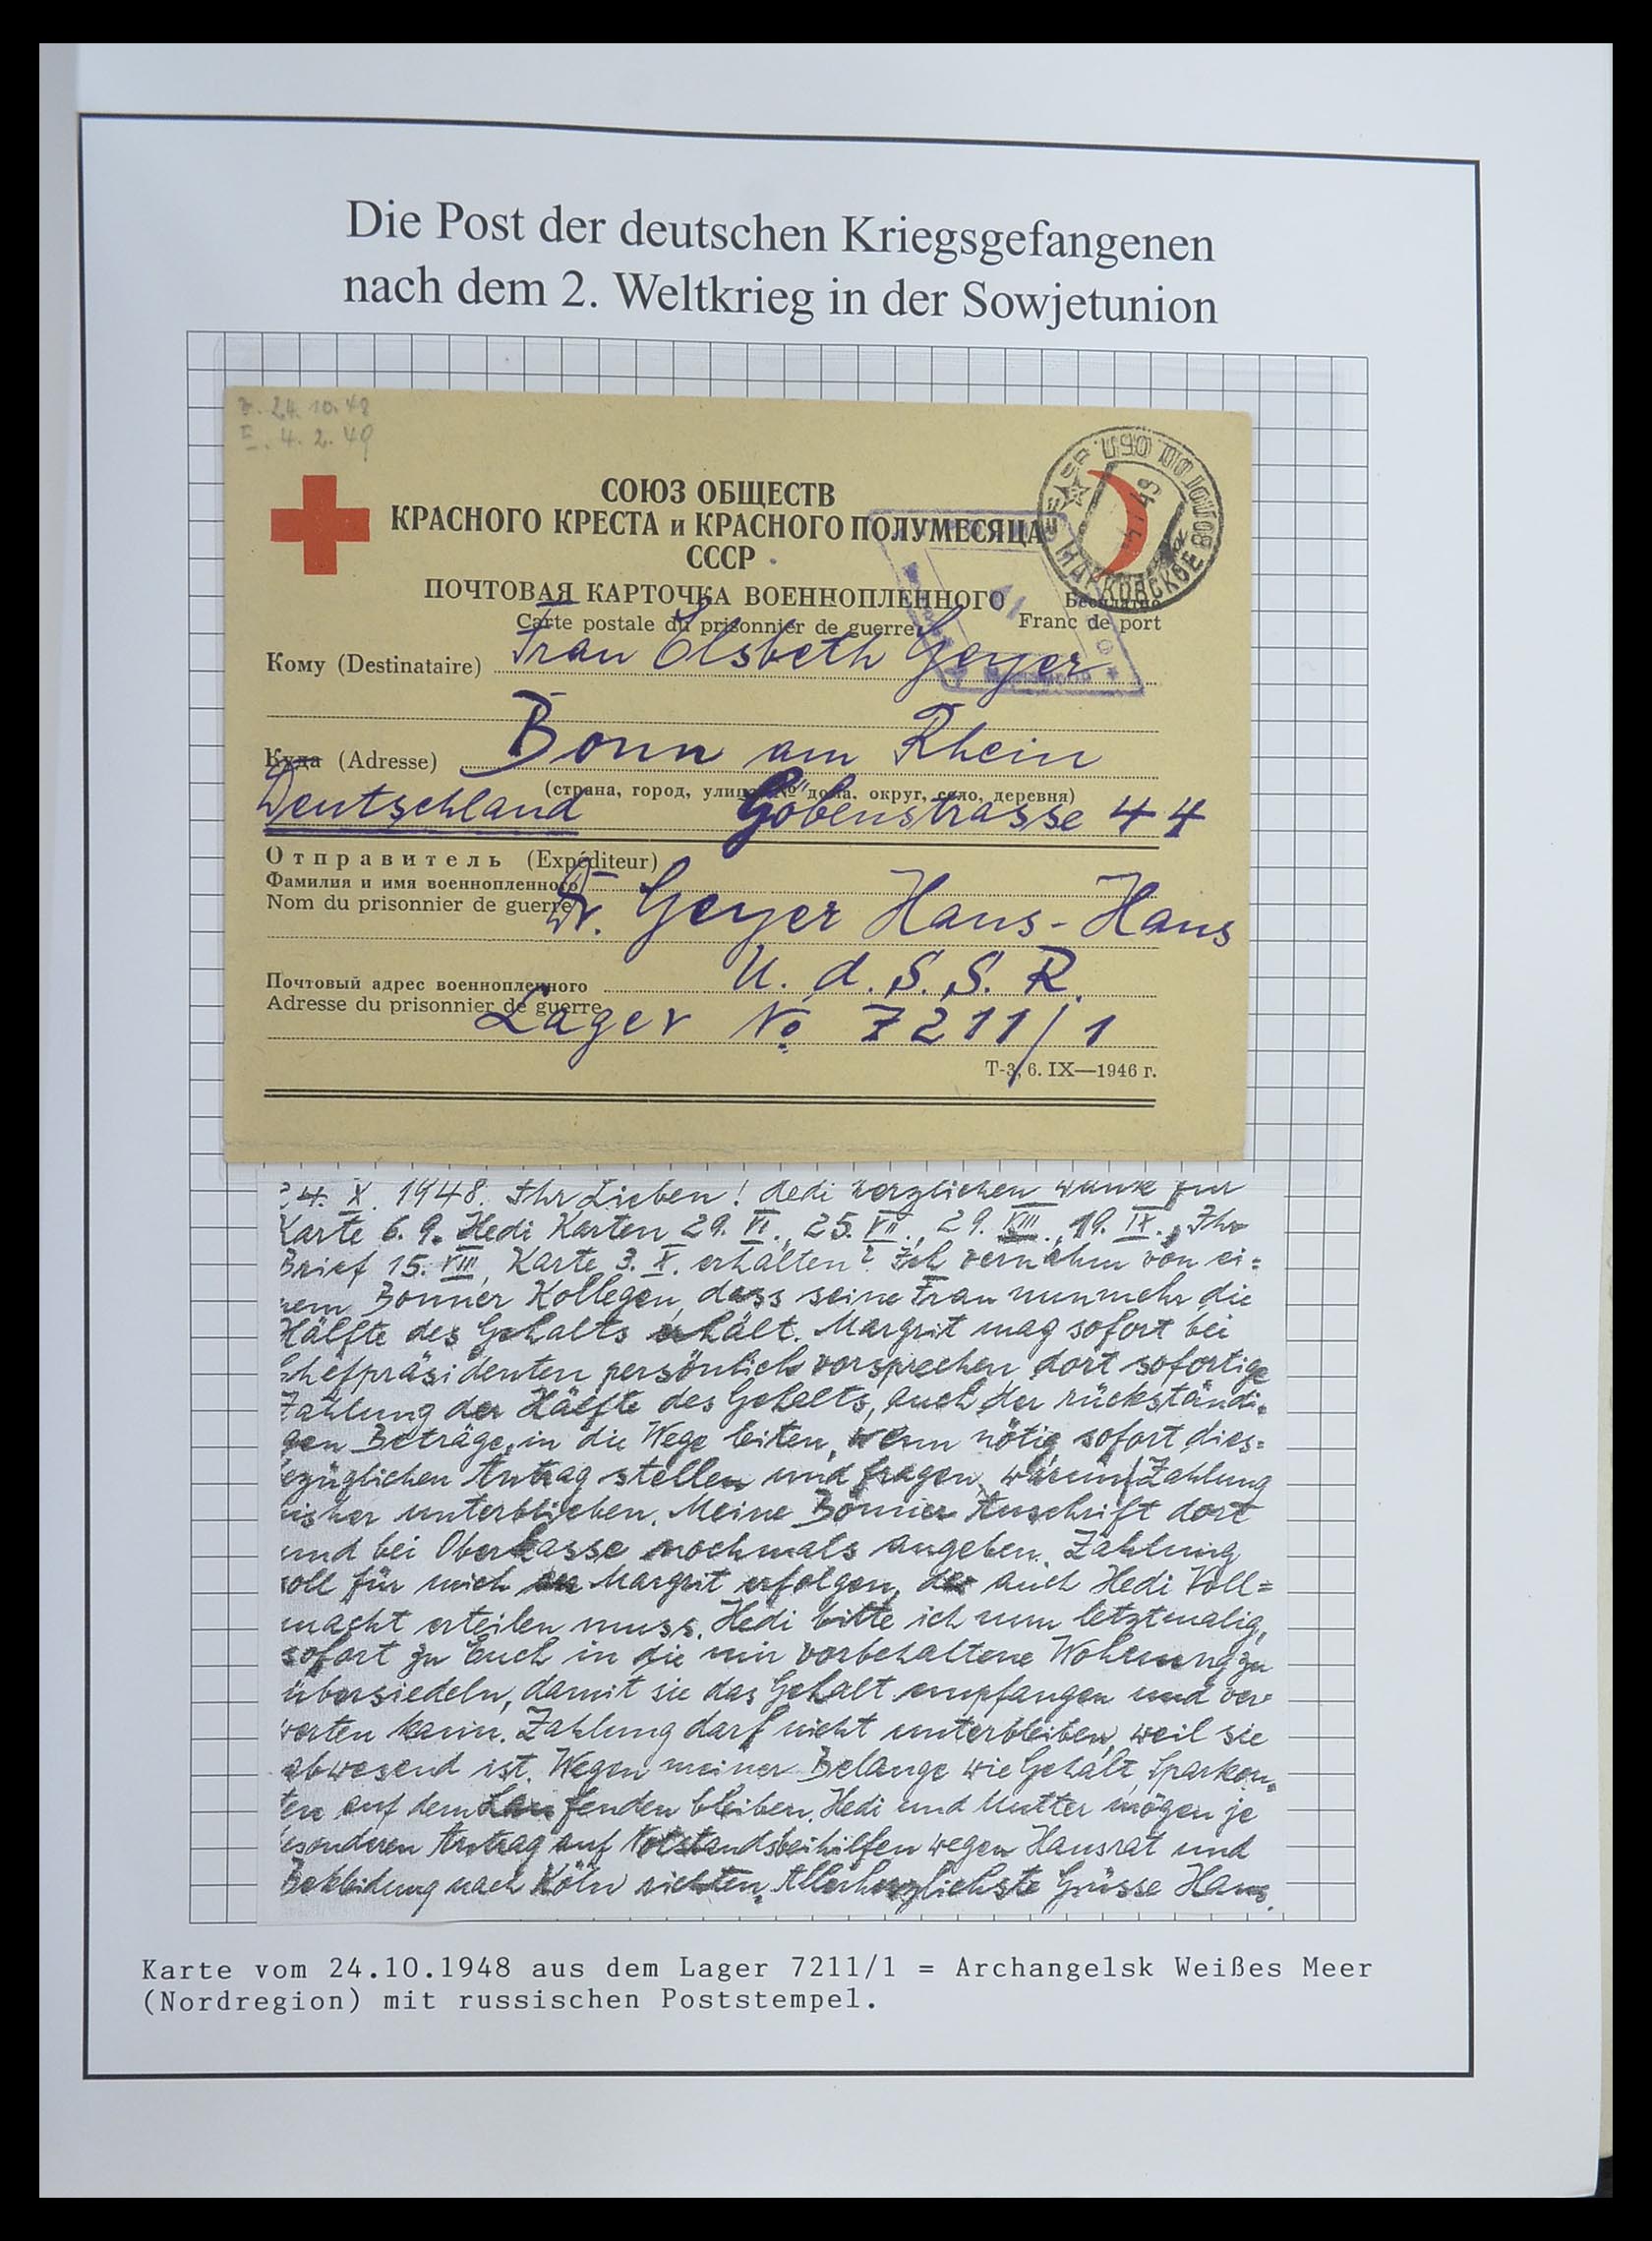 Die Post der deutschen Kriegsgefangenen
nach dem 2. Weltkrieg in der Sowjetunion
24.10.48
4.2.49
СОЮЗ ОБЩЕСТВ
КРАСНОГО КРЕСТА и КРАСНОГО ПОЛУМЕСЯЦА
СССР
ПОЧТОВАЯ КАРТОЧКА ВОЕННОПЛЕННОГО
Бесплатно
Carte postale du prisonnier de guerre
Franc de port
Кому (Destinataire) Frau Elsbeth Geyer
Куда (Adresse) Bonn am Rhein
(страна, город, улица, № дома, округ, село, деревня)
Deutschland Göbenstrasse 44
Отправитель (Expéditeur)
Фамилия и имя военнопленного
Nom du prisonnier de guerre Dr. Geyer Hans-Hans
Почтовый адрес военнопленного U.d.S.S.R.
Adresse du prisonnier de guerre
Lager No 7211/1
Т-3, 6. IX—1946 г.
24. X. 1948. Ihr Lieben! Hedi herzlichen Dank für
Karte 6. 9. Hedi Karten 29. VI., 25. VII., 29. VIII., 19. IX., Ihr
Brief 15. VIII, Karte 3. X. erhalten? Ich vernahm von ei=
nem Bonner Kollegen, dass seine Frau nunmehr die
Hälfte des Gehalts erhält. Margrit mag sofort bei
Chefpräsidenten persönlich vorsprechen, dort sofortige
Zahlung der Hälfte des Gehalts, auch der rückständi=
gen Beträge, in die Wege leiten, wenn nötig sofort dies=
bezüglichen Antrag stellen und fragen, warum Zahlung
bisher unterblieben. Meine Bonner Anschrift dort
und bei Oberkasse nochmals angeben. Zahlung
soll für mich an Margrit erfolgen, der auch Hedi Voll=
macht erteilen muss. Hedi bitte ich nun letztmalig,
sofort zu Euch in die mir vorbehaltene Wohnung zu
übersiedeln, damit sie das Gehalt empfangen und ver=
werten kann. Zahlung darf nicht unterbleiben, weil sie
abwesend ist. Wegen meiner Belange wie Gehalt, Sparkon=
ten auf dem Laufenden bleiben. Hedi und Mutter mögen je
besonderen Antrag auf Notstandsbeihilfen wegen Hausrat und
Bekleidung nach Köln richten. Allerherzlichste Grüsse Hans.
Karte vom 24.10.1948 aus dem Lager 7211/1 = Archangelsk Weißes Meer
(Nordregion) mit russischen Poststempel.